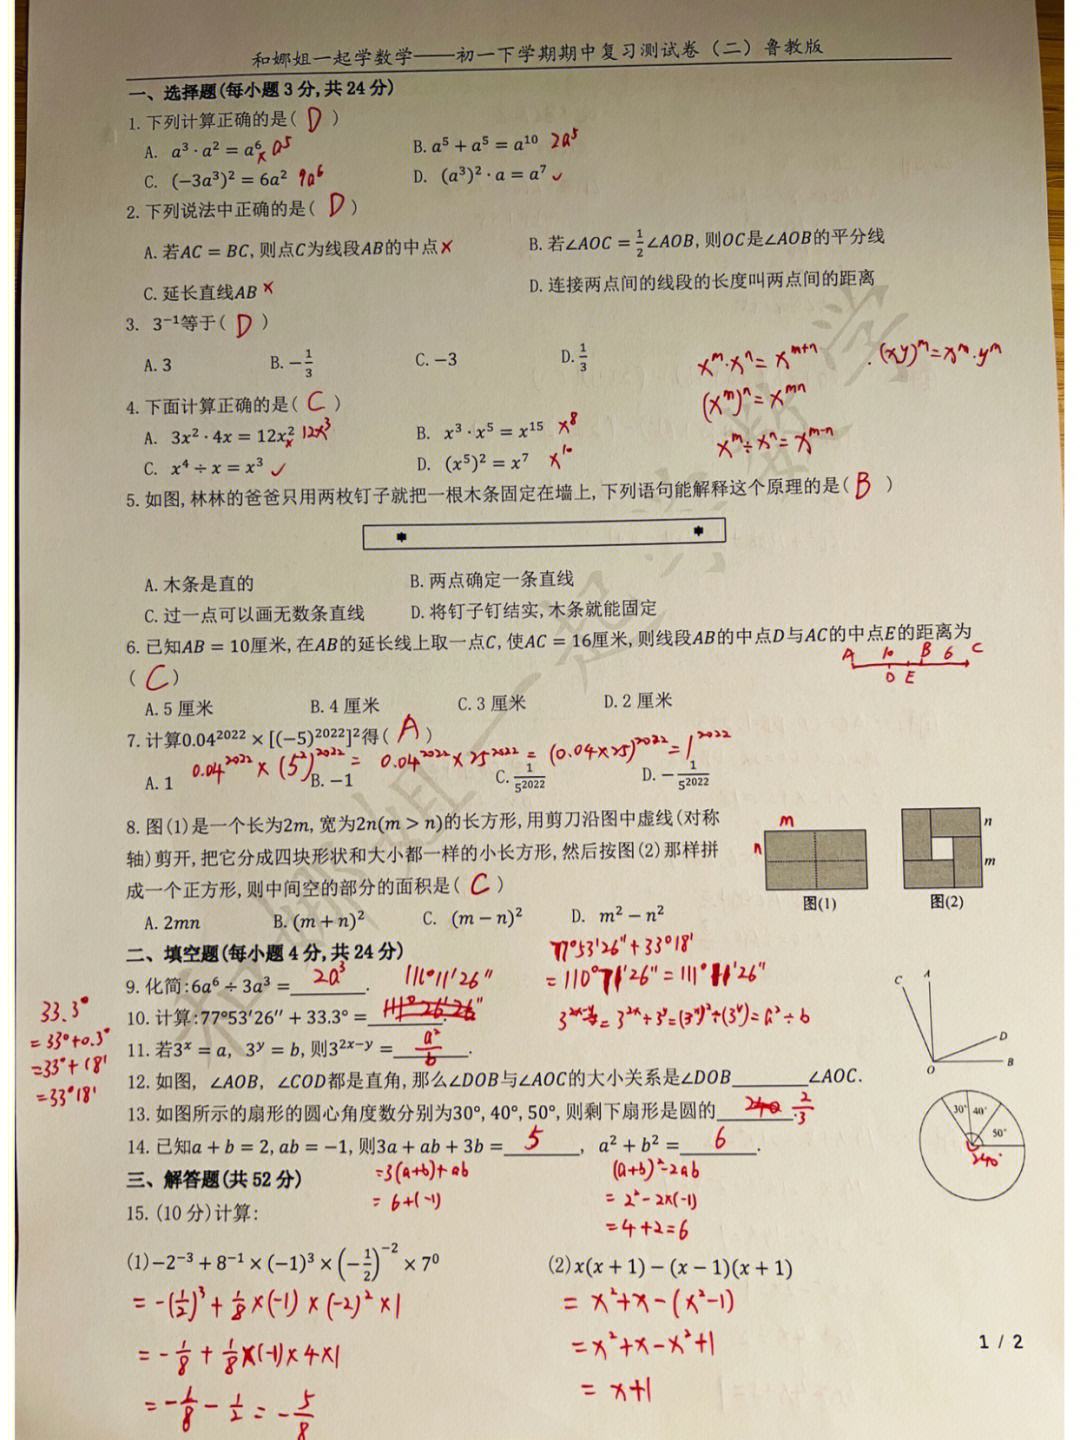 和娜姐一起学数学——初一下学期期中复习测试卷（二）鲁教版
一、选择题(每小题3分,共24分)
1.下列计算正确的是( D )
A. a³·a²=a⁶ × a⁵  B. a⁵+a⁵=a¹⁰ 2a⁵
C. (−3a³)²=6a² 9a⁶  D. (a³)²·a=a⁷ ✓
2.下列说法中正确的是( D )
A.若AC=BC,则点C为线段AB的中点 ×  B.若∠AOC=1/2∠AOB,则OC是∠AOB的平分线
C.延长直线AB ×  D.连接两点间的线段的长度叫两点间的距离
3. 3⁻¹等于( D )
A.3  B.−1/3  C.−3  D.1/3
xᵐ·xⁿ=xᵐ⁺ⁿ  (xy)ᵐ=xᵐ·yᵐ
(xᵐ)ⁿ=xᵐⁿ
xᵐ÷xⁿ=xᵐ⁻ⁿ
4.下面计算正确的是( C )
A. 3x²·4x=12x² × 12x³  B. x³·x⁵=x¹⁵ x⁸
C. x⁴÷x=x³ ✓  D. (x⁵)²=x⁷ x¹⁰
5.如图,林林的爸爸只用两枚钉子就把一根木条固定在墙上,下列语句能解释这个原理的是( B )
A.木条是直的  B.两点确定一条直线
C.过一点可以画无数条直线  D.将钉子钉结实,木条就能固定
6.已知AB=10厘米,在AB的延长线上取一点C,使AC=16厘米,则线段AB的中点D与AC的中点E的距离为
( C )
A 10 B 6 C
D E
A.5厘米  B.4厘米  C.3厘米  D.2厘米
7.计算0.04²⁰²²×[(−5)²⁰²²]²得( A )
0.04²⁰²²×(5²)²⁰²²=0.04²⁰²²×25²⁰²²=(0.04×25)²⁰²²=1²⁰²²
A.1  B.−1  C.1/5²⁰²²  D.−1/5²⁰²²
8.图(1)是一个长为2m,宽为2n(m>n)的长方形,用剪刀沿图中虚线(对称
轴)剪开,把它分成四块形状和大小都一样的小长方形,然后按图(2)那样拼
成一个正方形,则中间空的部分的面积是( C )
m
n
n
m
图(1)  图(2)
A.2mn  B.(m+n)²  C. (m−n)²  D. m²−n²
二、填空题(每小题4分,共24分)
77°53′26″+33°18′
=110°71′26″=111°11′26″
9.化简:6a⁶÷3a³= 2a³ .
111°11′26″
10.计算:77°53′26″+33.3°= 111°26′26″ .
33.3°
=33°+0.3°
=33°+18′
=33°18′
3²ˣ⁻ʸ=3²ˣ÷3ʸ=(3ˣ)²÷(3ʸ)=a²÷b
11.若3ˣ=a, 3ʸ=b,则3²ˣ⁻ʸ= a²/b .
12.如图, ∠AOB, ∠COD都是直角,那么∠DOB与∠AOC的大小关系是∠DOB________∠AOC.
C A
D
O B
13.如图所示的扇形的圆心角度数分别为30°,40°,50°,则剩下扇形是圆的 240 2/3 .
30° 40°
50°
240°
14.已知a+b=2,ab=−1,则3a+ab+3b= 5 , a²+b²= 6 .
=3(a+b)+ab  (a+b)²−2ab
=6+(−1)  =2²−2×(−1)
=4+2=6
三、解答题(共52分)
15.(10分)计算:
(1)−2⁻³+8⁻¹×(−1)³×(−1/2)⁻²×7⁰  (2)x(x+1)−(x−1)(x+1)
=−(1/2)³+1/8×(−1)×(−2)²×1  =x²+x−(x²−1)
=−1/8+1/8×(−1)×4×1  =x²+x−x²+1
=−1/8−1/2=−5/8  =x+1
1 / 2
和娜姐一起学数学